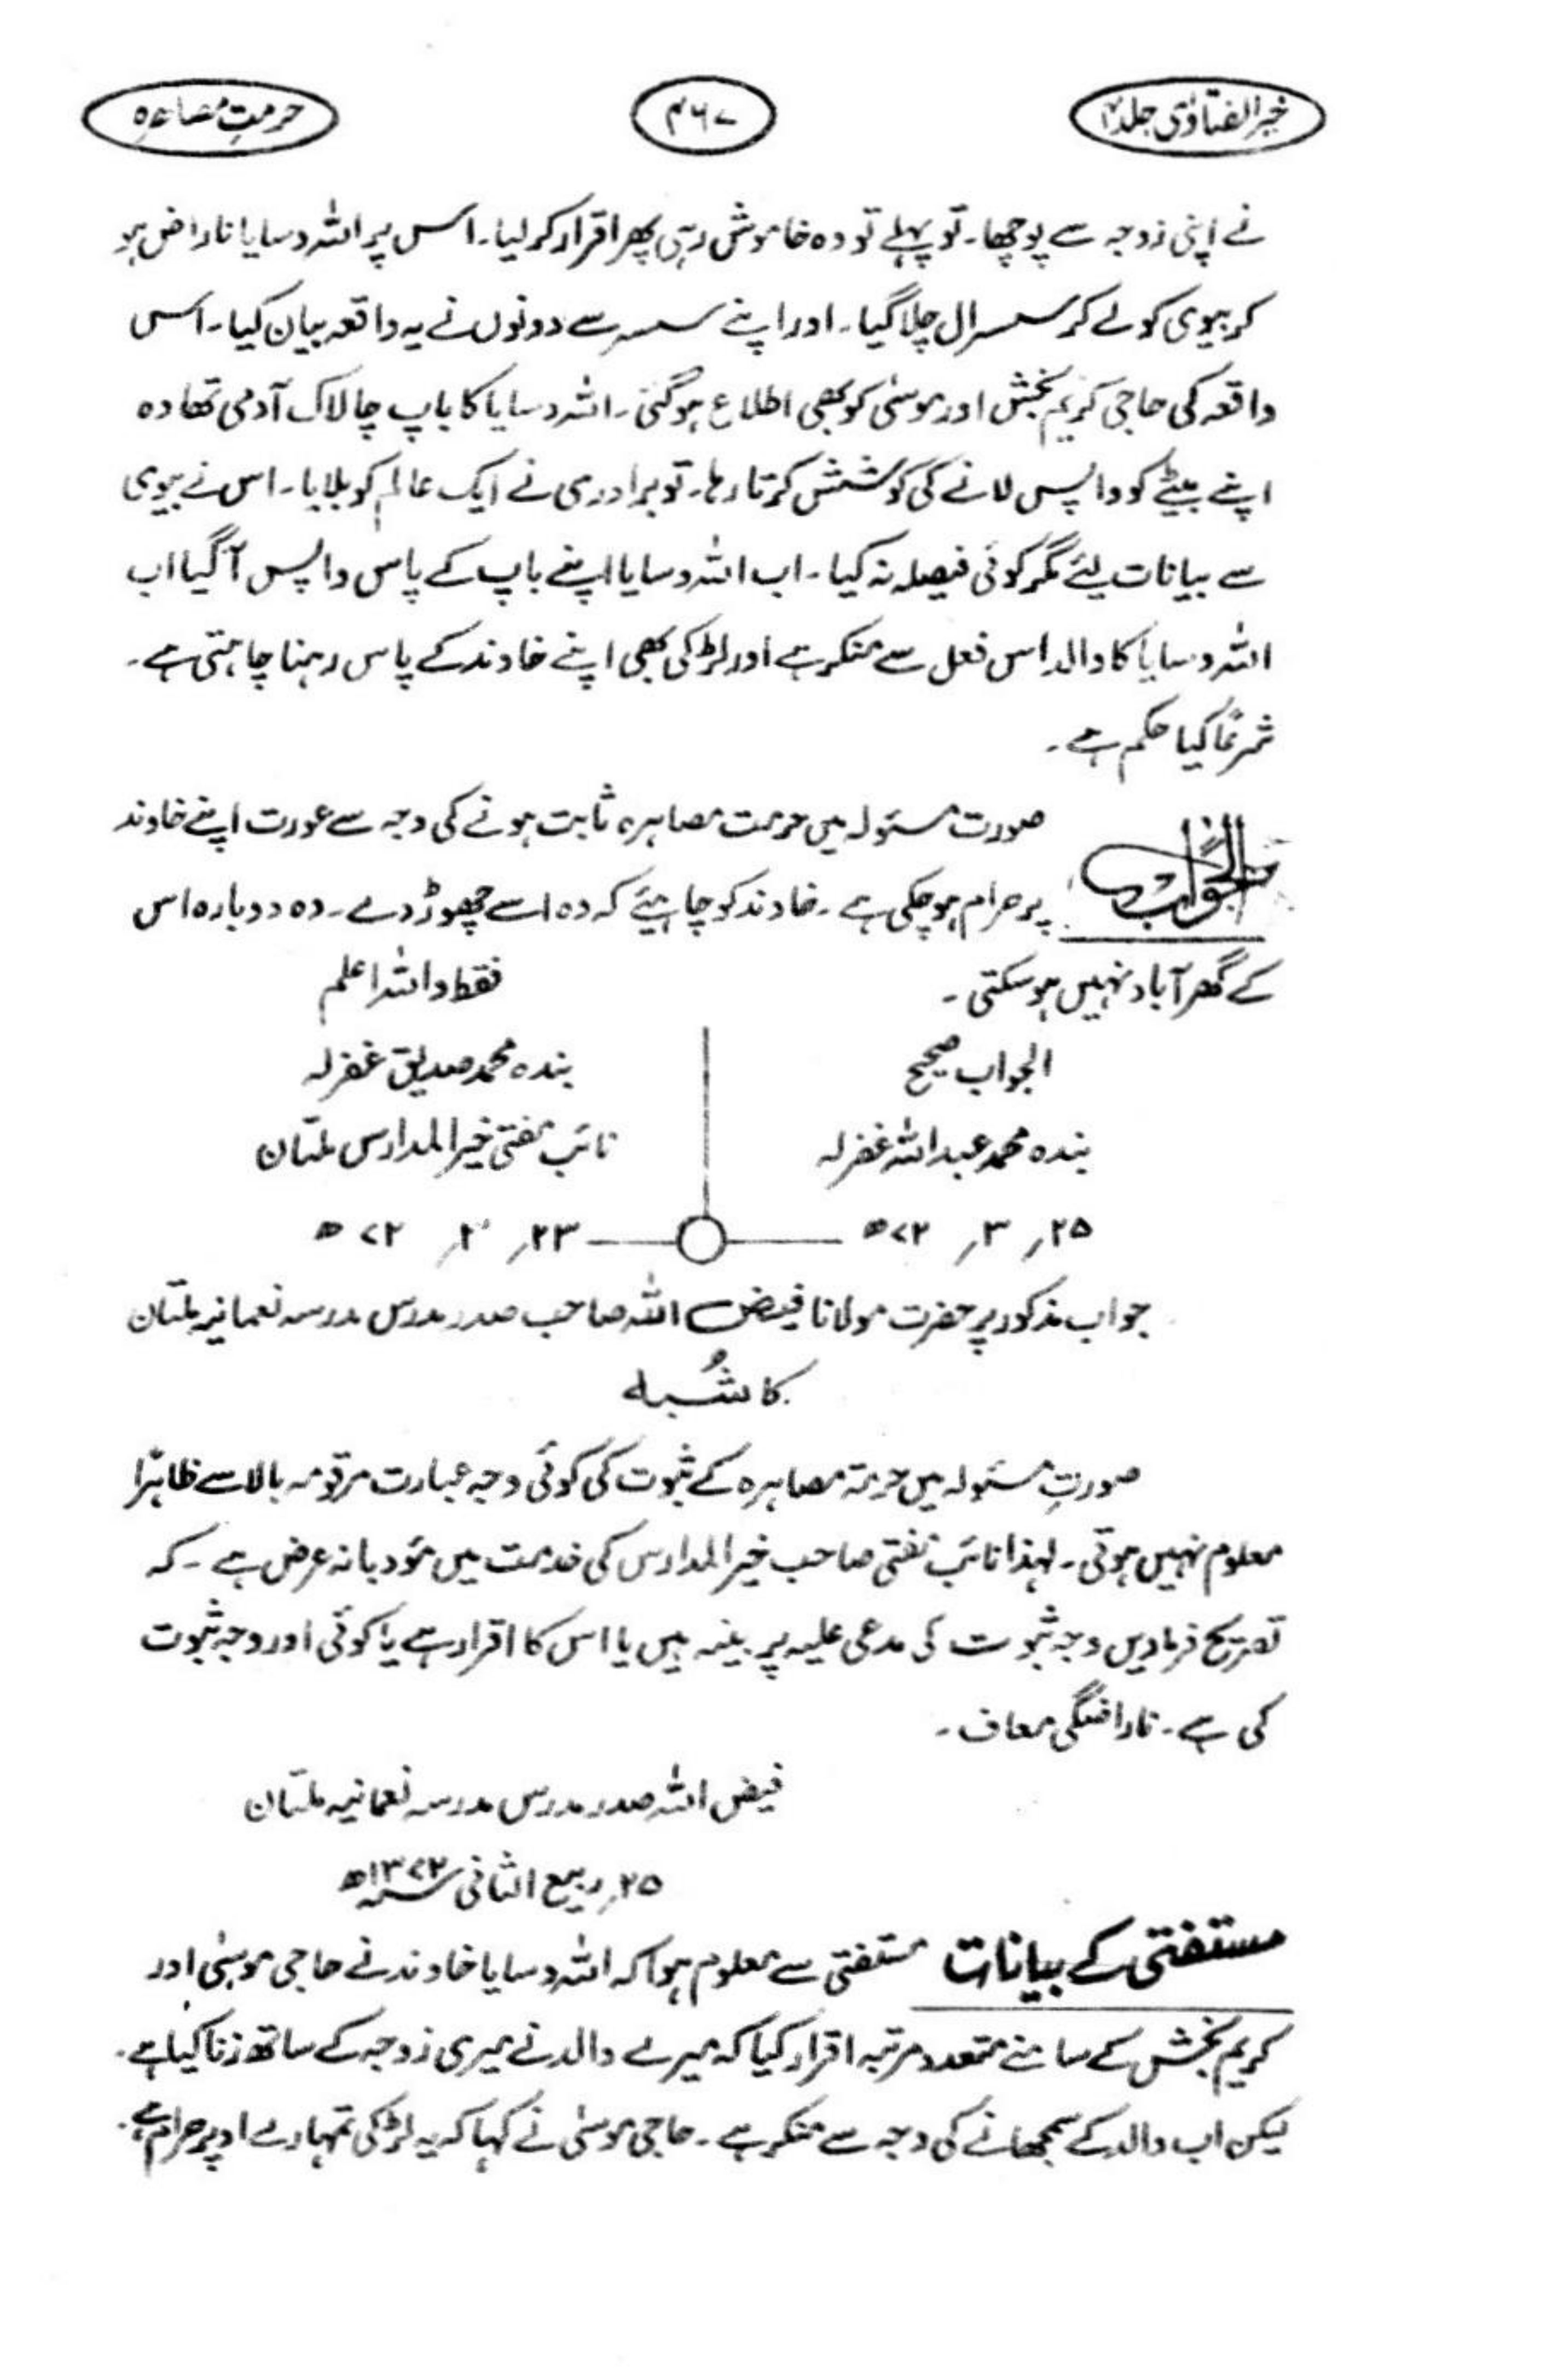 خیر الفتاویٰ جلد ۴
۴۶۷
حرمتِ مصاہرہ
نے اپنی زوجہ سے پوچھا۔ تو پہلے تو وہ خاموش رہی پھر اقرار کر لیا۔ اس پر اللہ وسایا ناراض ہو
کر بیوی کو لے کر سسرال چلا گیا۔ اور اپنے سسر سے دونوں نے یہ واقعہ بیان کیا۔ اس
واقعہ کی حاجی کریم بخش اور موسٰی کو بھی اطلاع ہو گئی۔ اللہ وسایا کا باپ چالاک آدمی تھا وہ
اپنے بیٹے کو واپس لانے کی کوشش کرتا رہا۔ تو برادری نے ایک عالم کو بلایا۔ اس نے بیوی
سے بیانات لئے مگر کوئی فیصلہ نہ کیا۔ اب اللہ وسایا اپنے باپ کے پاس واپس آگیا اب
اللہ وسایا کا والد اس فعل سے منکر ہے اور لڑکی بھی اپنے خاوند کے پاس رہنا چاہتی ہے۔
شرعًا کیا حکم ہے۔
الجواب
صورت مسئولہ میں حرمت مصاہرہ ثابت ہونے کی وجہ سے عورت اپنے خاوند
پر حرام ہو چکی ہے۔ خاوند کو چاہیئے کہ وہ اسے چھوڑ دے۔ وہ دوبارہ اس
کے گھر آباد نہیں ہو سکتی۔
فقط واللہ اعلم
الجواب صحیح
بندہ محمد عبداللہ غفرلہ
۲۵؍ ۳؍ ۷۲ھ
بندہ محمد صدیق غفرلہ
نائب مفتی خیر المدارس ملتان
۲۳؍ ۲؍ ۷۲ھ
جواب مذکور پر حضرت مولانا فیض اللہ صاحب صدر مدرس مدرسہ نعمانیہ ملتان
کا شُبہ
صورتِ مسئولہ میں حرمۃ مصاہرہ کے ثبوت کی کوئی وجہ عبارت مرقومہ بالا سے ظاہرًا
معلوم نہیں ہوتی۔ لہذا نائب مفتی صاحب خیر المدارس کی خدمت میں مؤدبانہ عرض ہے۔ کہ
تصریح فرمادیں وجہ ثبوت کی مدعی علیہ پر بینہ ہیں یا اس کا اقرار ہے یا کوئی اور وجہ ثبوت
کی ہے۔ ناراضگی معاف۔
فیض اللہ صدر مدرس مدرسہ نعمانیہ ملتان
۲۵؍ ربیع الثانی سنہ ۱۳۷۲ھ
مستفتی کے بیانات مستفتی سے معلوم ہوا کہ اللہ وسایا خاوند نے حاجی موسٰی اور
کریم بخش کے سامنے متعدد مرتبہ اقرار کیا کہ میرے والد نے میری زوجہ کے ساتھ زنا کیا ہے۔
لیکن اب والد کے سمجھانے کی وجہ سے منکر ہے۔ حاجی موسٰی نے کہا کہ یہ لڑکی تمہارے اوپر حرام ہے۔